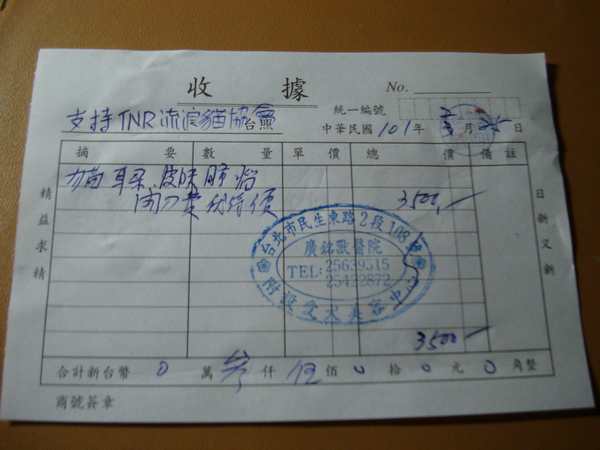 收據
No.
支持TNR流浪貓協會
統一編號
中華民國101年3月25日
摘要 數量 單價 總價 備註
耳朵 皮膚
開刀費 3500
台北市民生東路2段108號
廣銘獸醫院
TEL:25639515
25422872
附設愛犬美容中心
3500
合計新台幣0萬參仟伍佰0拾0元0角整
商號簽章
精益求精
日新又新